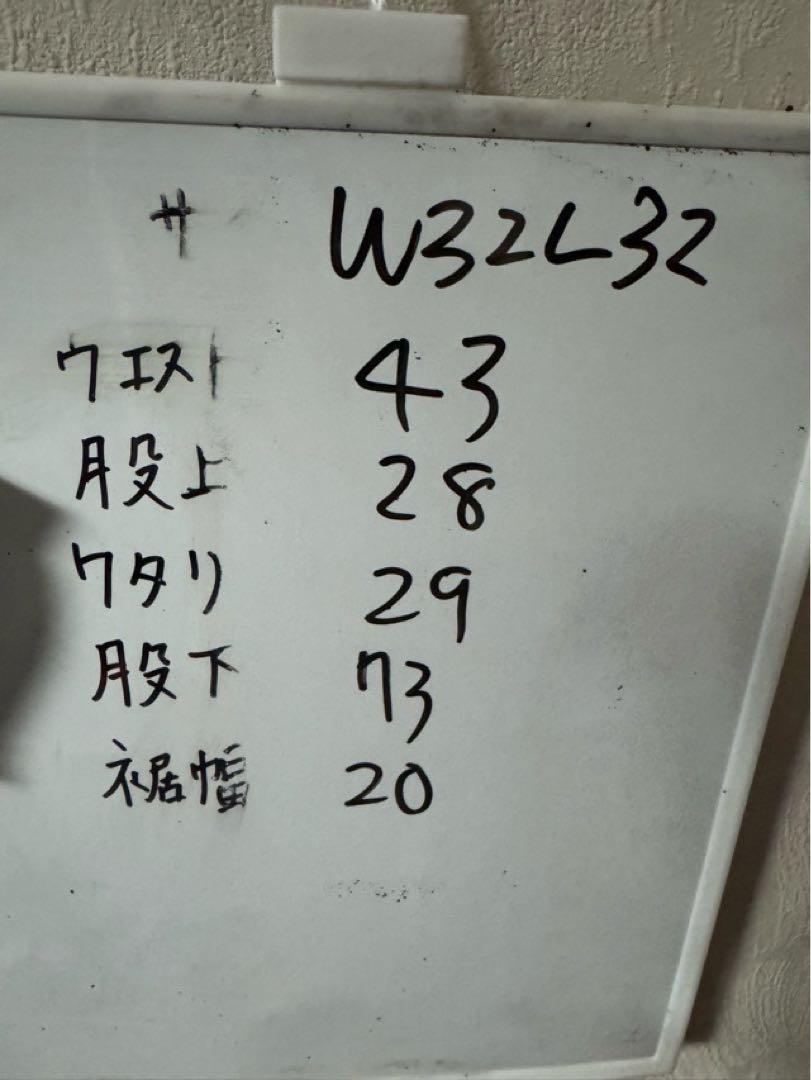 サ W32L32
ウエスト 43
股上 28
ワタリ 29
股下 73
裾幅 20